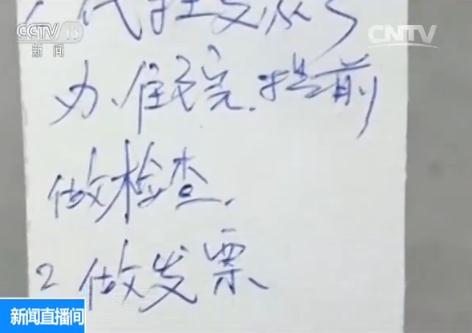 CCTV 13
新闻
CNTV
办住院.提前
做检查.
2 做发票
新闻直播间